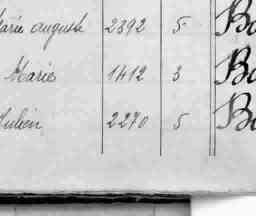 Marie auguste 2392 5 Bo
Marie 1412 3 Bo
Julien 2270 5 Bo